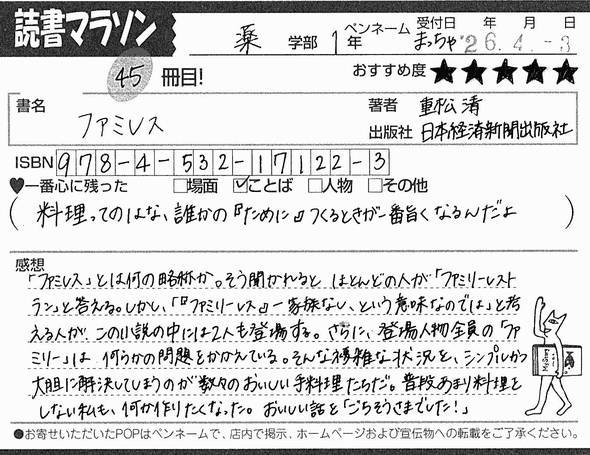 読書マラソン
薬 学部 1年
ペンネーム まっちゃ
受付日 年 月 日
'26.4.-3
45 冊目!
おすすめ度 ★★★★★
書名 ファミレス
著者 重松清
出版社 日本経済新聞出版社
ISBN 978-4-532-17122-3
♥一番心に残った □場面 ☑ことば □人物 □その他
(料理ってのはな、誰かの『ために』つくるときが一番旨くなるんだよ)
感想
「ファミレス」とは何の略称か。そう聞かれると、ほとんどの人が「ファミリーレスト
ラン」と答える。しかし、「『ファミリーレス』―家族なし、という意味なのでは」と考
える人が、この小説の中には2人も登場する。さらに、登場人物全員の「ファ
ミリー」は、何らかの問題をかかえている。そんな複雑な状況を、シンプルかつ
大胆に解決してしまうのが数々のおいしい手料理たちだ。普段あまり料理を
しない私も、何か作りたくなった。おいしい話と「ごちそうさまでした!」
●お寄せいただいたPOPはペンネームで、店内で掲示、ホームページおよび宣伝物への転載をご了承ください。